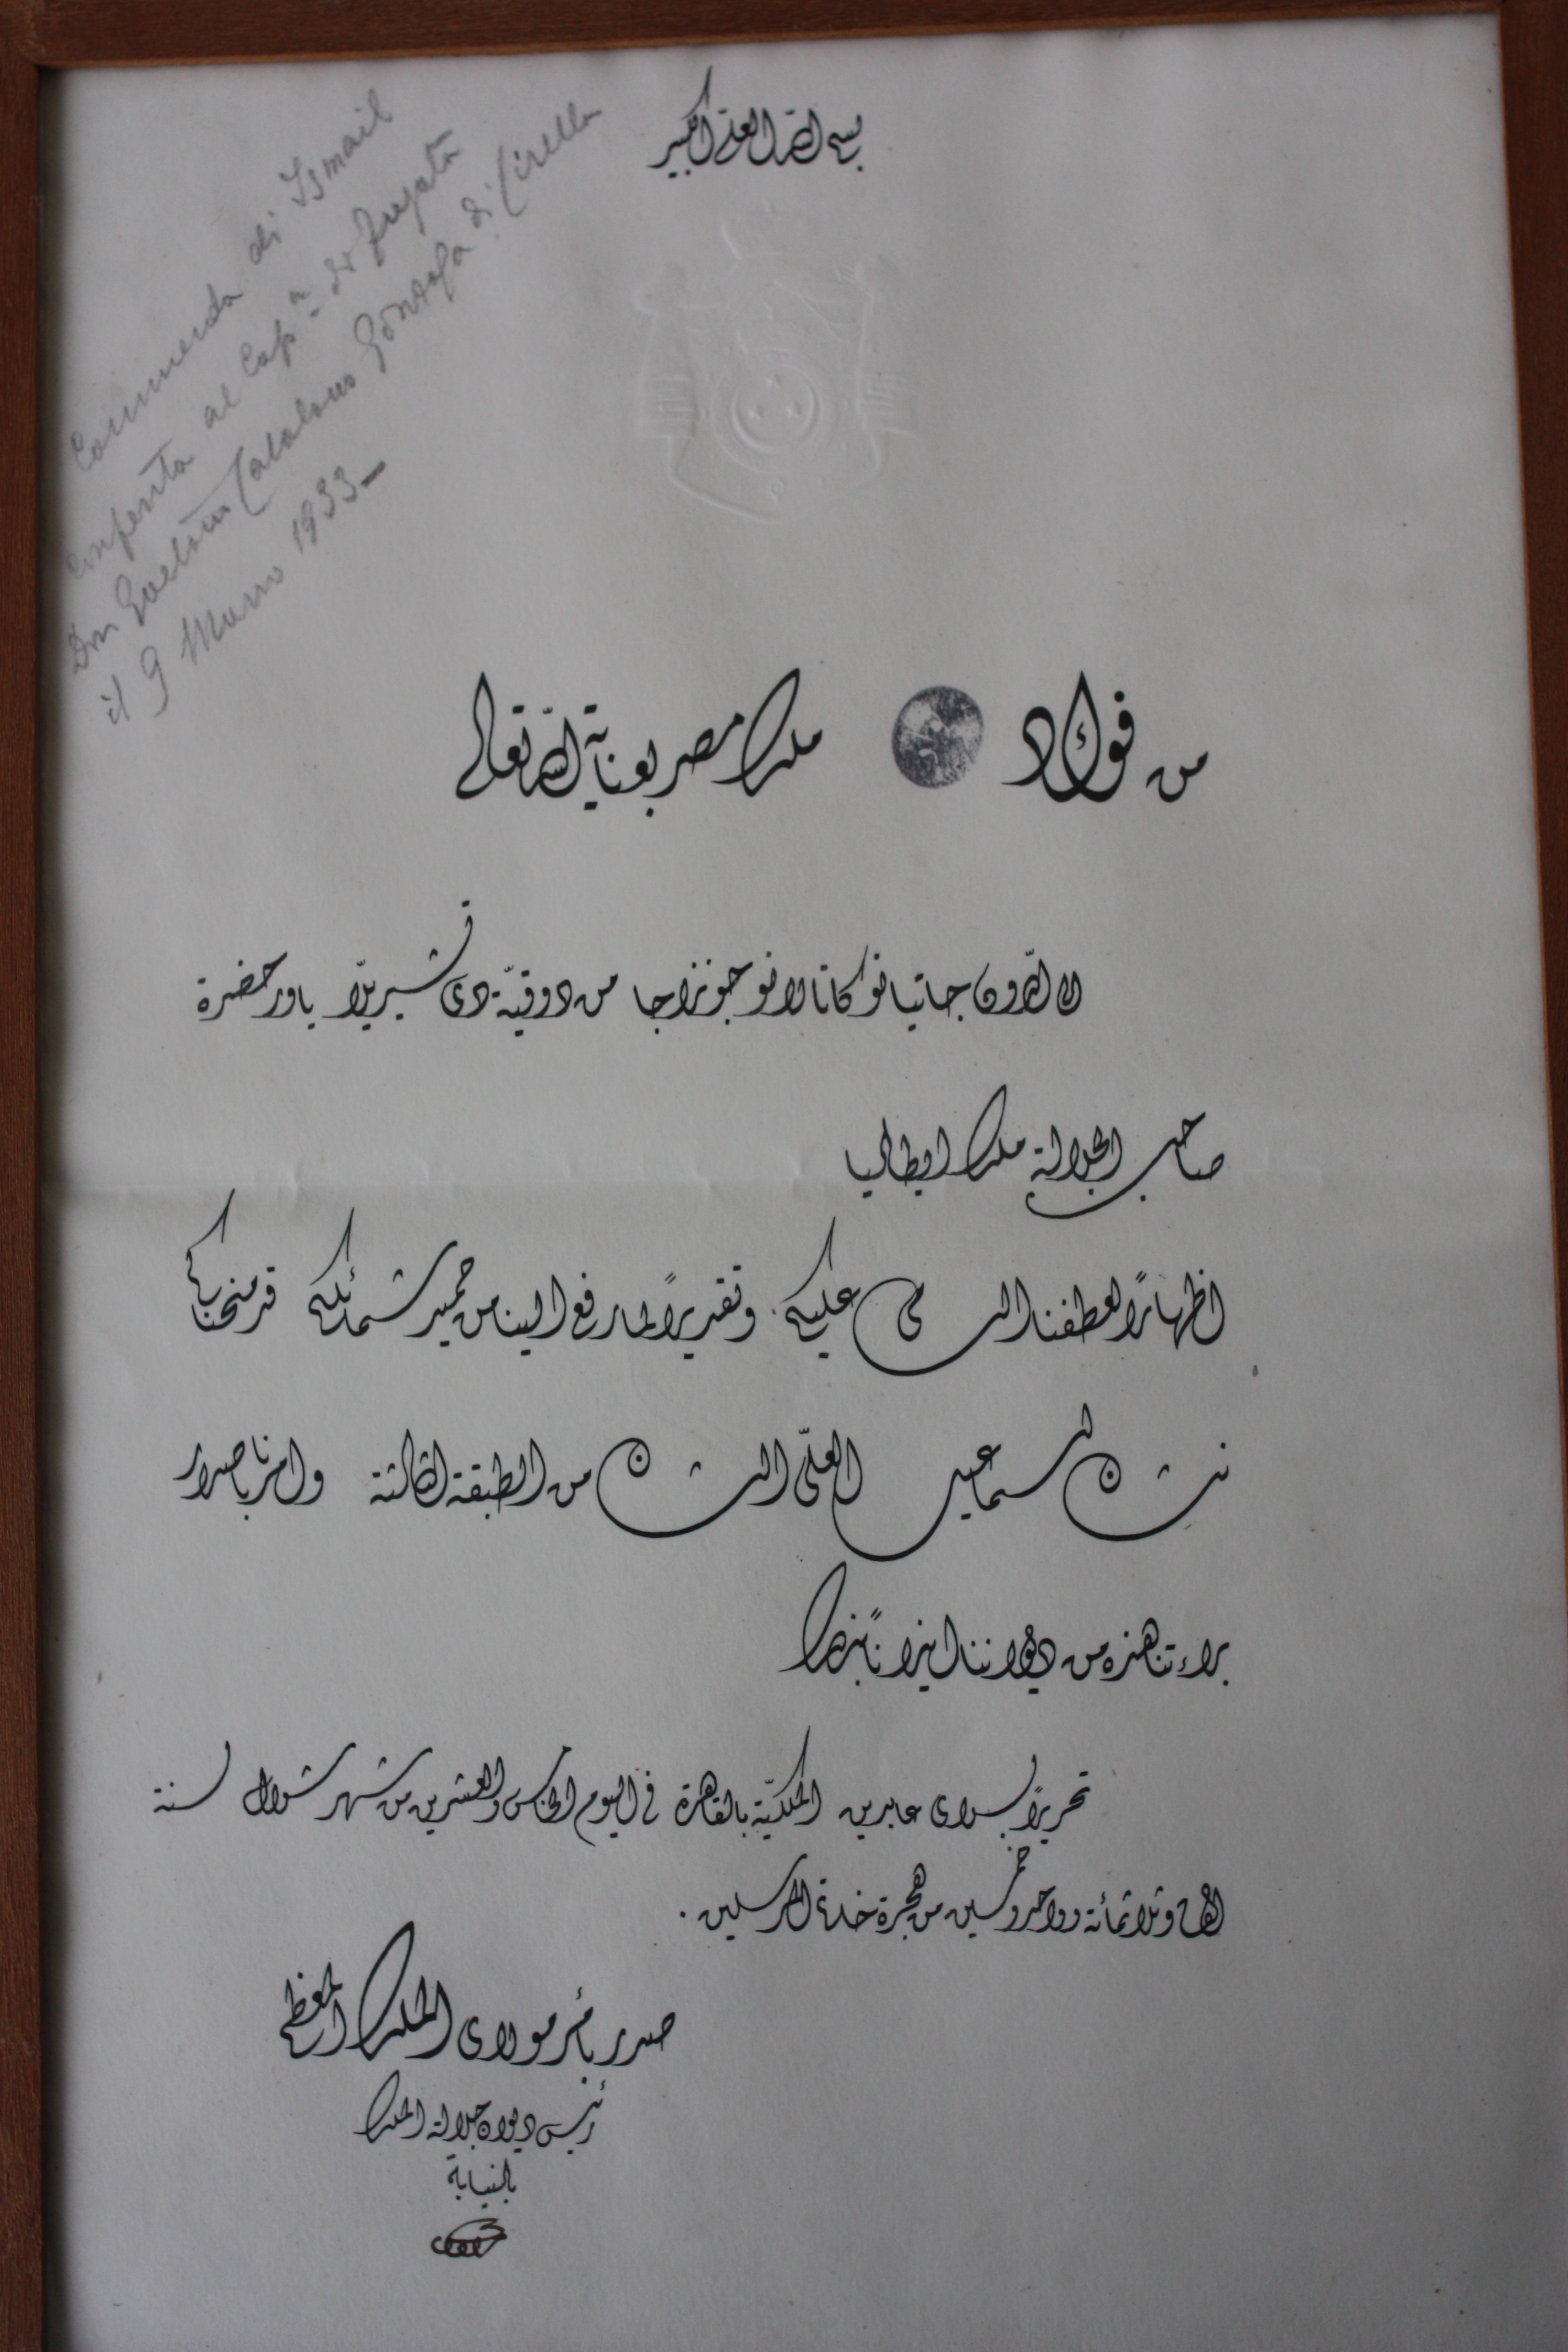 بسم الله العلى الكبير
Commenda di Ismail
conferita al Cap.no di fregata
Don Gaetano Catalano Gonzaga di Cirella
il 9 Marzo 1933 –
من فؤاد ملك مصر بعناية الله تعالى
الى الدون جايتانو كاتالانو جونزاجا من دوقية دى تشيريللا ياور حضرة
صاحب الجلالة ملك ايطاليا
اظهارًا لعطفنا السامى عليكم وتقديرًا لما رفع الينا من حميد شمائلكم قد منحناكم
نشان اسماعيل العلى الشان من الطبقة الثالثة وامرنا باصدار
براءتنا هذه من ديواننا ايذانًا بذلك
تحريرًا بسراى عابدين الملكية بالقاهرة فى اليوم الخامس والعشرين من شهر شوال سنة
الف وثلاثمائة وواحد وخمسين من هجرة خاتم المرسلين.
صدر بأمر مولاى الملك المعظم
رئيس ديوان جلالة الملك
بالنيابة